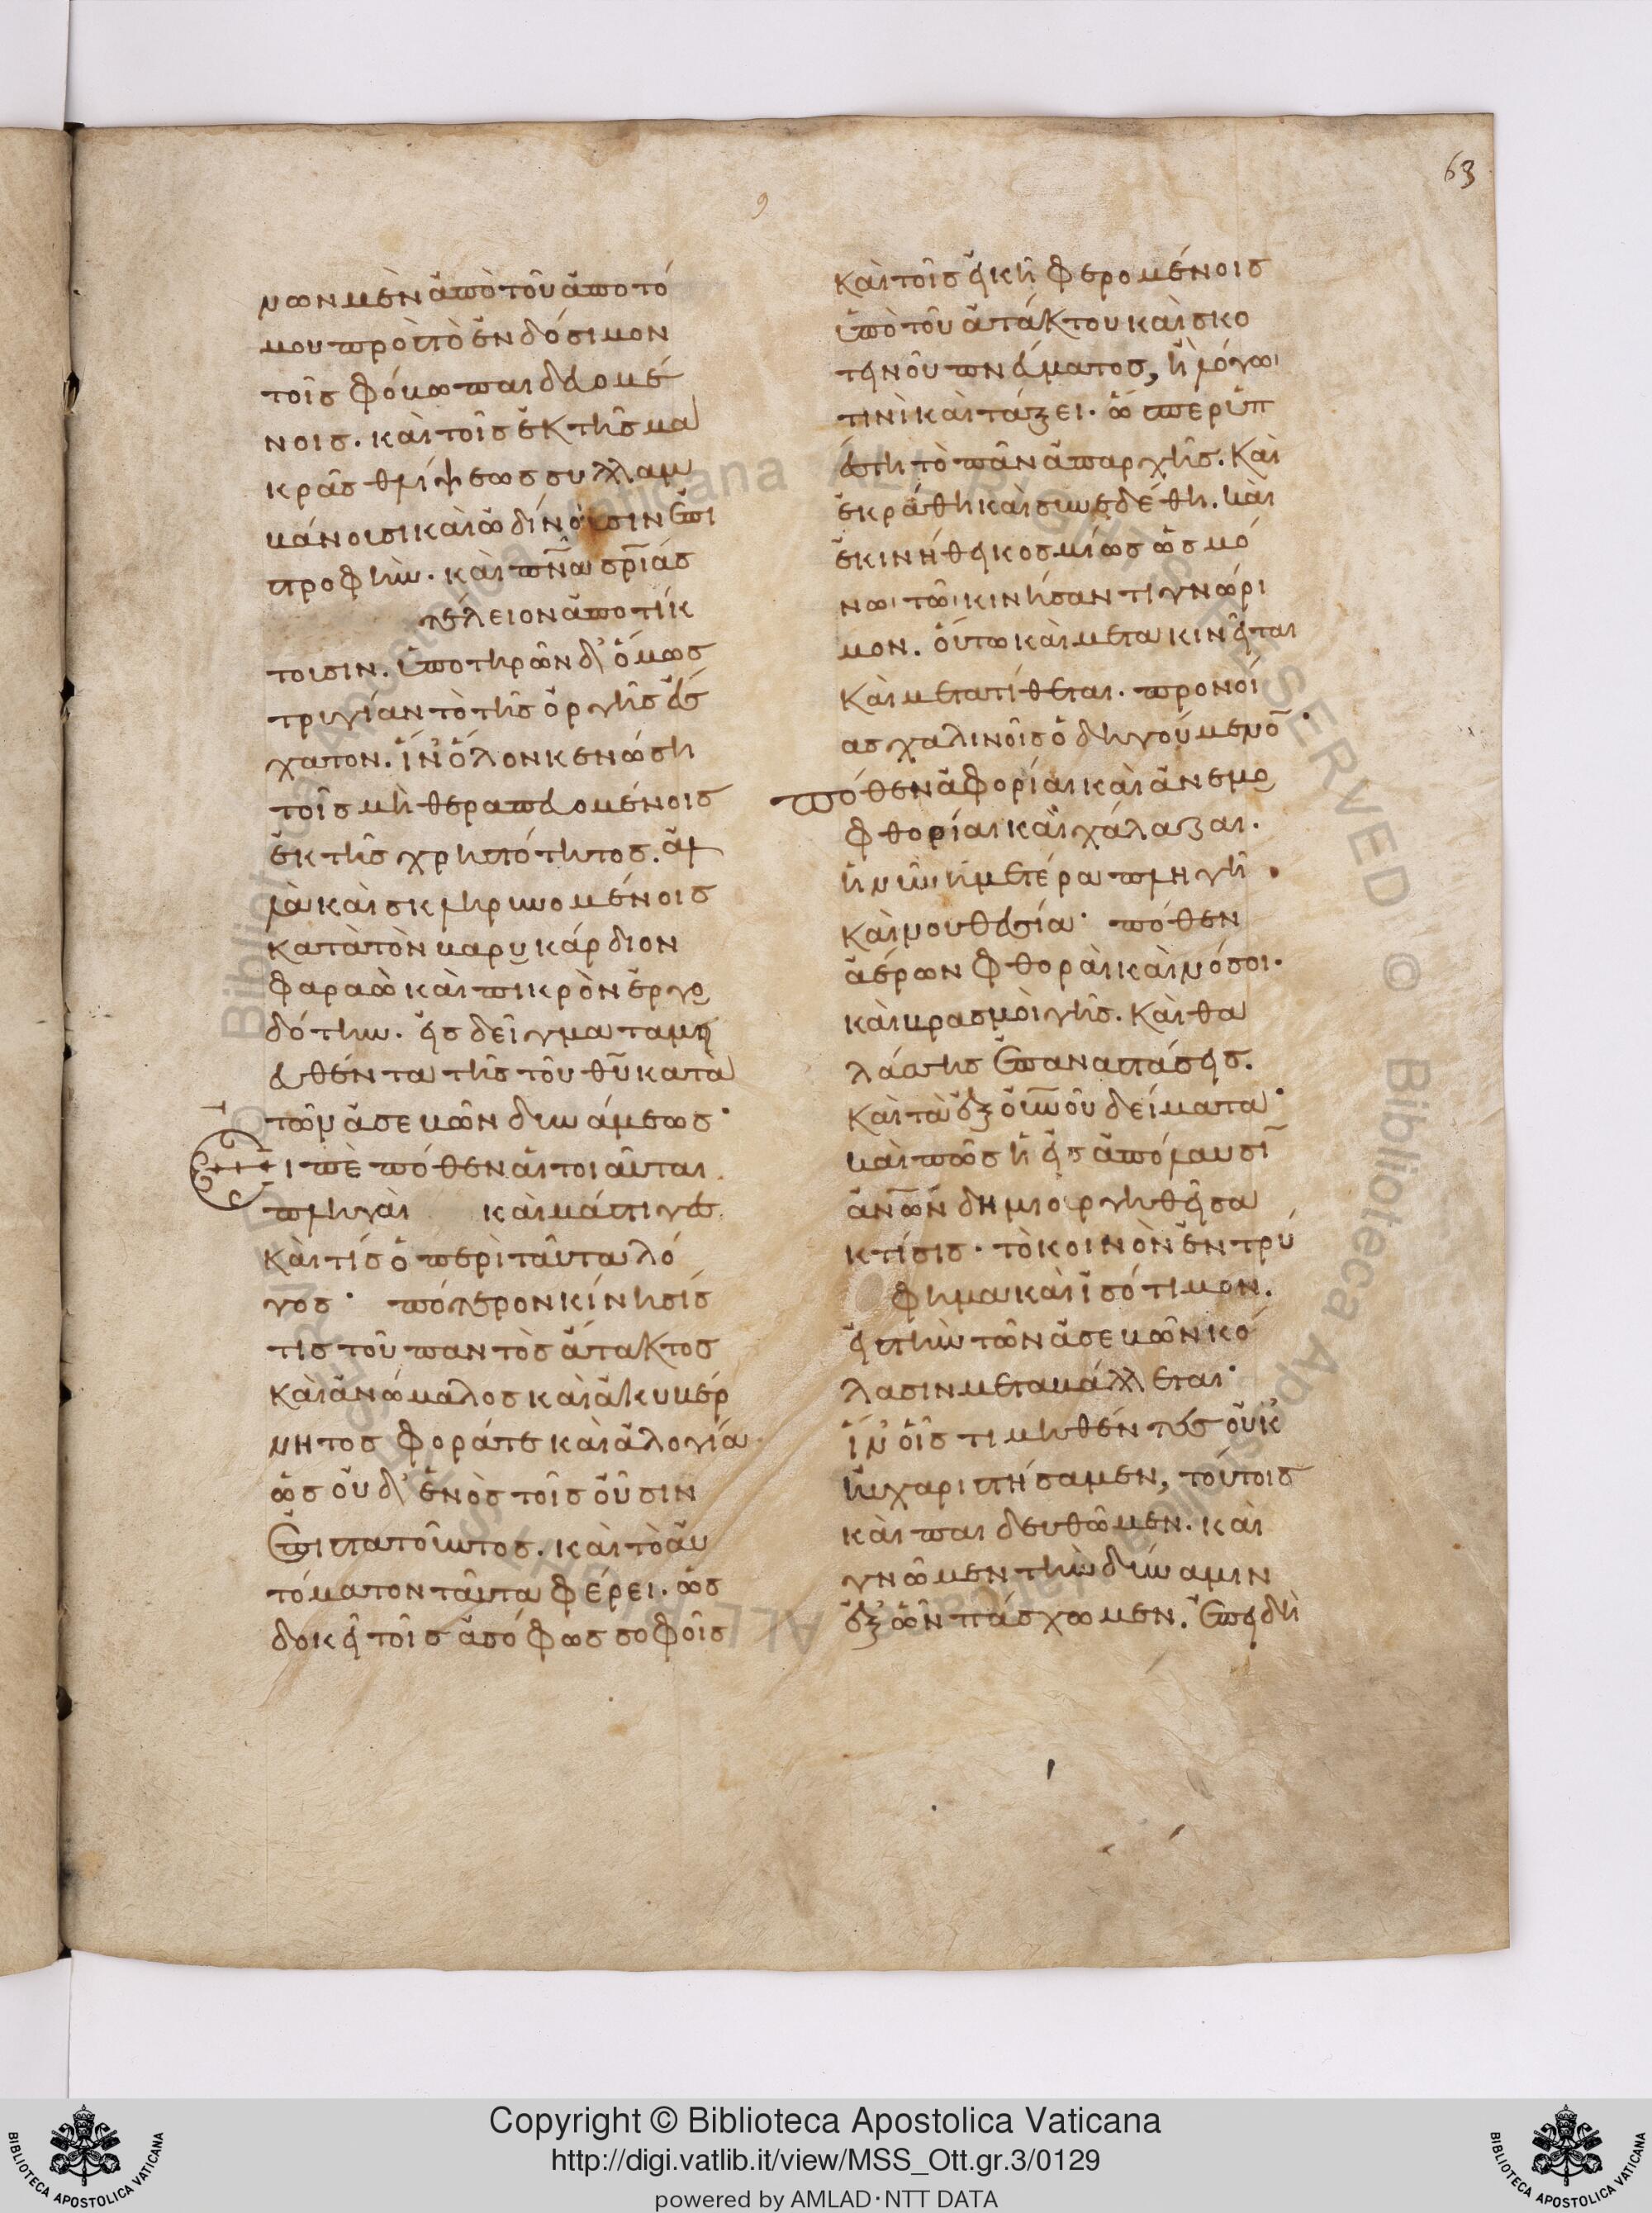 63
νων μὲν ἀπὸ τοῦ ἀποτό
μου πρὸς τὸ ἐνδόσιμον
τοῖς φόβω παιδευομέ
νοις. καὶ τοῖς ἐκ τῆς μα
κρᾶς θλίψεως συλλαμ
βάνουσι καὶ ὠδίνουσιν ἐπὶ
στροφὴν. καὶ πνᾶ σρίας
τέλειον ἀποτίκ
τουσιν. ὑποτηρῶν δ' ὅμως
τρυγίαν τὸ τῆς ὀργῆς ἔσ
χατον. ἵν' ὅλον κενώση
τοῖς μὴ θεραπευομένοις
ἐκ τῆς χρηστότητος. ἀλ
λὰ καὶ σκληρυνομένοις
κατὰ τὸν βαρυκάρδιον
φαραὼ καὶ πικρὸν ἐργο
δότην. εἰς δεῖγμα ταμι
ευθέντα τῆς τοῦ θῦ κατὰ
τῶν ἀσεβῶν δυνάμεως·
Εἰπὲ πόθεν αἱ τοιαῦται
πληγαὶ καὶ μάστιγες
καὶ τίς ὁ περὶ ταῦτα λό
γος· πότερον κίνησίς
τις τοῦ παντὸς ἄτακτος
καὶ ἀνώμαλος καὶ ἀκυβέρ
νητος φορά τε καὶ ἀλογία
ὡς οὐδ' ἑνὸς τοῖς οὖσιν
ἐπιστατοῦντος. καὶ τὸ αὐ
τόματον ταῦτα φέρει. ὡς
δοκεῖ τοῖς ἀσόφως σοφοῖς
καὶ τοῖς εἰκῆ φερομένοις
ὑπὸ τοῦ ἀτάκτου καὶ σκο
τεινοῦ πνεύματος, ἢ λόγωι
τινὶ καὶ τάξει. ὧσπερ ὑπ
έστη τὸ πᾶν ἀπαρχῆς. καὶ
ἐκράθη καὶ συνεδέθη. καὶ
ἐκινήθη κοσμίως ὡς μό
νωι τῶι κινήσαντι γνώρι
μον. οὕτω καὶ μετακινεῖται
καὶ μετατίθεται. προνοί
ας χαλινοῖς ὁδηγούμενο̄·
πόθεν ἀφορίαι καὶ ἀνεμο
φθορίαι καὶ χάλαζαι.
ἡ νῦν ἡμετέρα πληγὴ
καὶ νουθεσία· πόθεν
ἀέρων φθοραὶ καὶ νόσοι.
καὶ βρασμοὶ γῆς. καὶ θα
λάσσης ἐπαναστάσεις.
καὶ τὰ ἐξ οὐνοῦ δείματα·
καὶ πῶς ἡ εἰς ἀπόλαυσῑ
ἀνῶν δημιουργηθεῖσα
κτίσις· τὸ κοινὸν ἐντρύ
φημα καὶ ἰσότιμον.
εἰς τὴν τῶν ἀσεβῶν κό
λασιν μεταβάλλεται·
ἵν' οἷς τιμηθέντες οὐκ
ηὐχαριστήσαμεν, τούτοις
καὶ παιδευθῶμεν. καὶ
γνῶμεν τὴν δύναμιν
ἐξ ὧν πάσχομεν. ἐπειδὴ
Copyright © Biblioteca Apostolica Vaticana
http://digi.vatlib.it/view/MSS_Ott.gr.3/0129
powered by AMLAD·NTT DATA